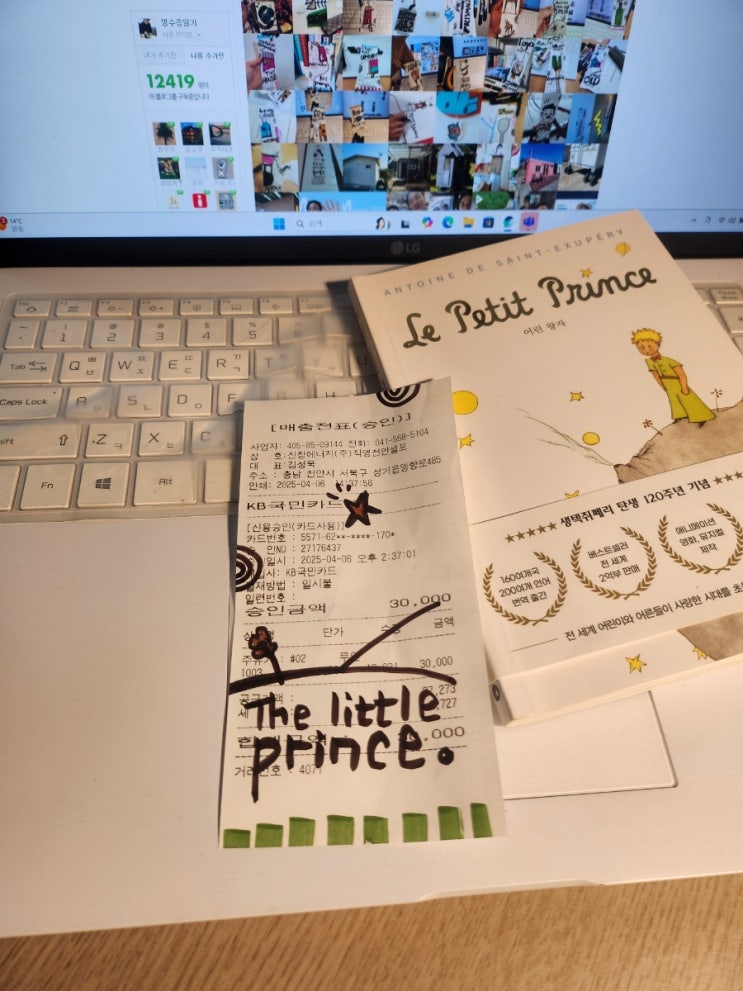 영수증일기
내가 추가한 나를 추가한
12419 명이
이 블로그를 구독중입니다
14°C
맑음
검색
LG
Tab
Q
W
E
R
Caps Lock
A
S
D
Z
X
C
Fn
Alt
ANTOINE DE SAINT-EXUPÉRY
Le Petit Prince
어린 왕자
생텍쥐페리 탄생 120주년 기념
160여개국
200여개 언어
번역 출간
베스트셀러
전 세계
2억부 판매
애니메이션
영화, 뮤지컬
제작
전 세계 어린이와 어른들이 사랑한 시대를 초
[매출전표(승인)]
사업자: 405-85-09144 전화: 041-568-5104
상 호:신창에너지(주)직영천안셀프
대 표:김성욱
주소 : 충남 천안시 서북구 성거읍망향로485
인쇄: 2025-04-06 14:37:56
KB국민카드
[신용승인(카드사용)]
카드번호 : 5571-62**-****-170*
인ND : 27176437
일시 : 2025-04-06 오후 2:37:01
사: KB국민카드
방법 : 일시불
일련번호 :
승인금액 30,000
단가 금액
#02
1003 30,000
273
세 727
000
The little
prince.
거래번호 : 4071